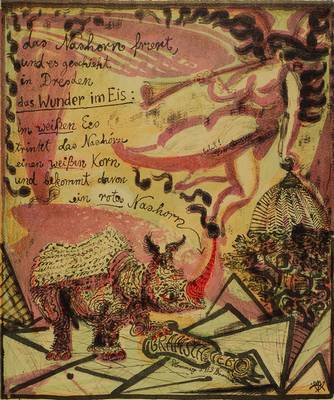 das Nashorn friert
und es geschieht
in Dresden
das Wunder im Eis:
im weißen Eis
trinkt das Nashorn
einen weißen Korn
und bekommt davon
ein rotes Nashorn